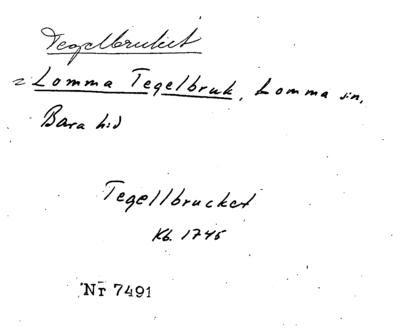 Tegelbruket
= Lomma Tegelbruk, Lomma sn,
Bara hd
Tegellbrucket
Kb. 1745
Nr 7491